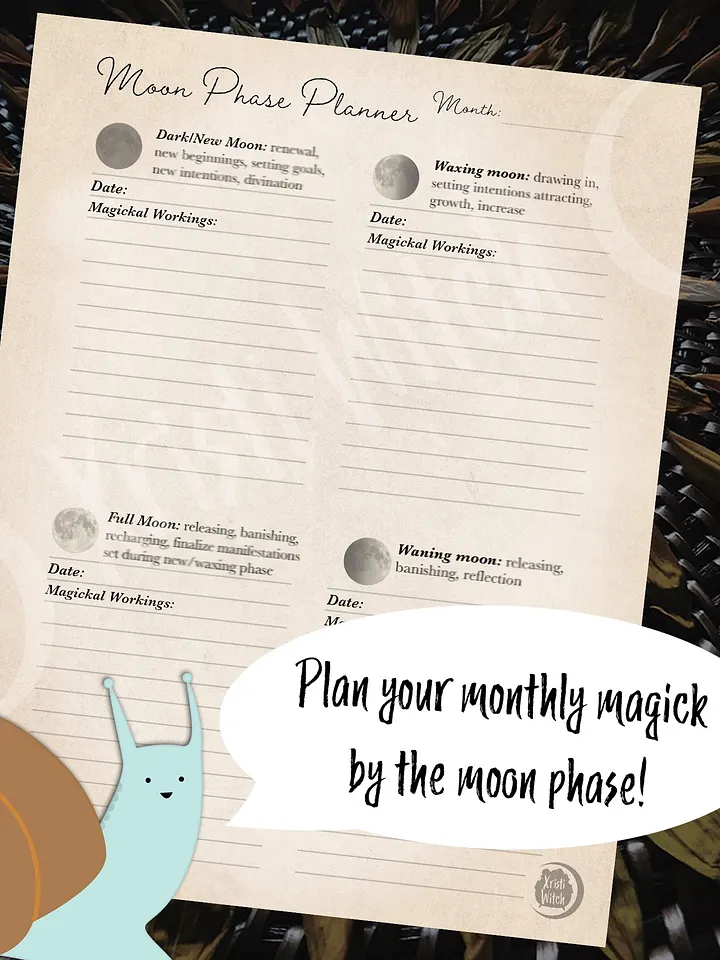 Moon Phase Planner
Month:
Dark/New Moon: renewal,
new beginnings, setting goals,
new intentions, divination
Date:
Magickal Workings:
Waxing moon: drawing in,
setting intentions attracting,
growth, increase
Date:
Magickal Workings:
Full Moon: releasing, banishing,
recharging, finalize manifestations
set during new/waxing phase
Date:
Magickal Workings:
Waning moon: releasing,
banishing, reflection
Date:
Plan your monthly magick
by the moon phase!
Kristi
Witch